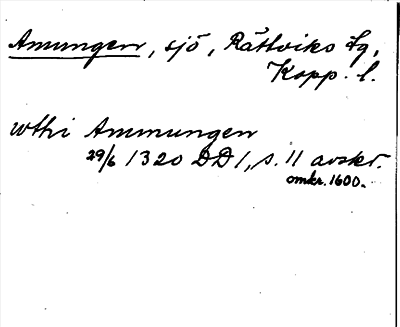 Amungen, sjö, Rättviks tg,
Kopp. l.
wthi Ammungen
29/6 1320 DD1, s. 11 avskr.
omkr. 1600.